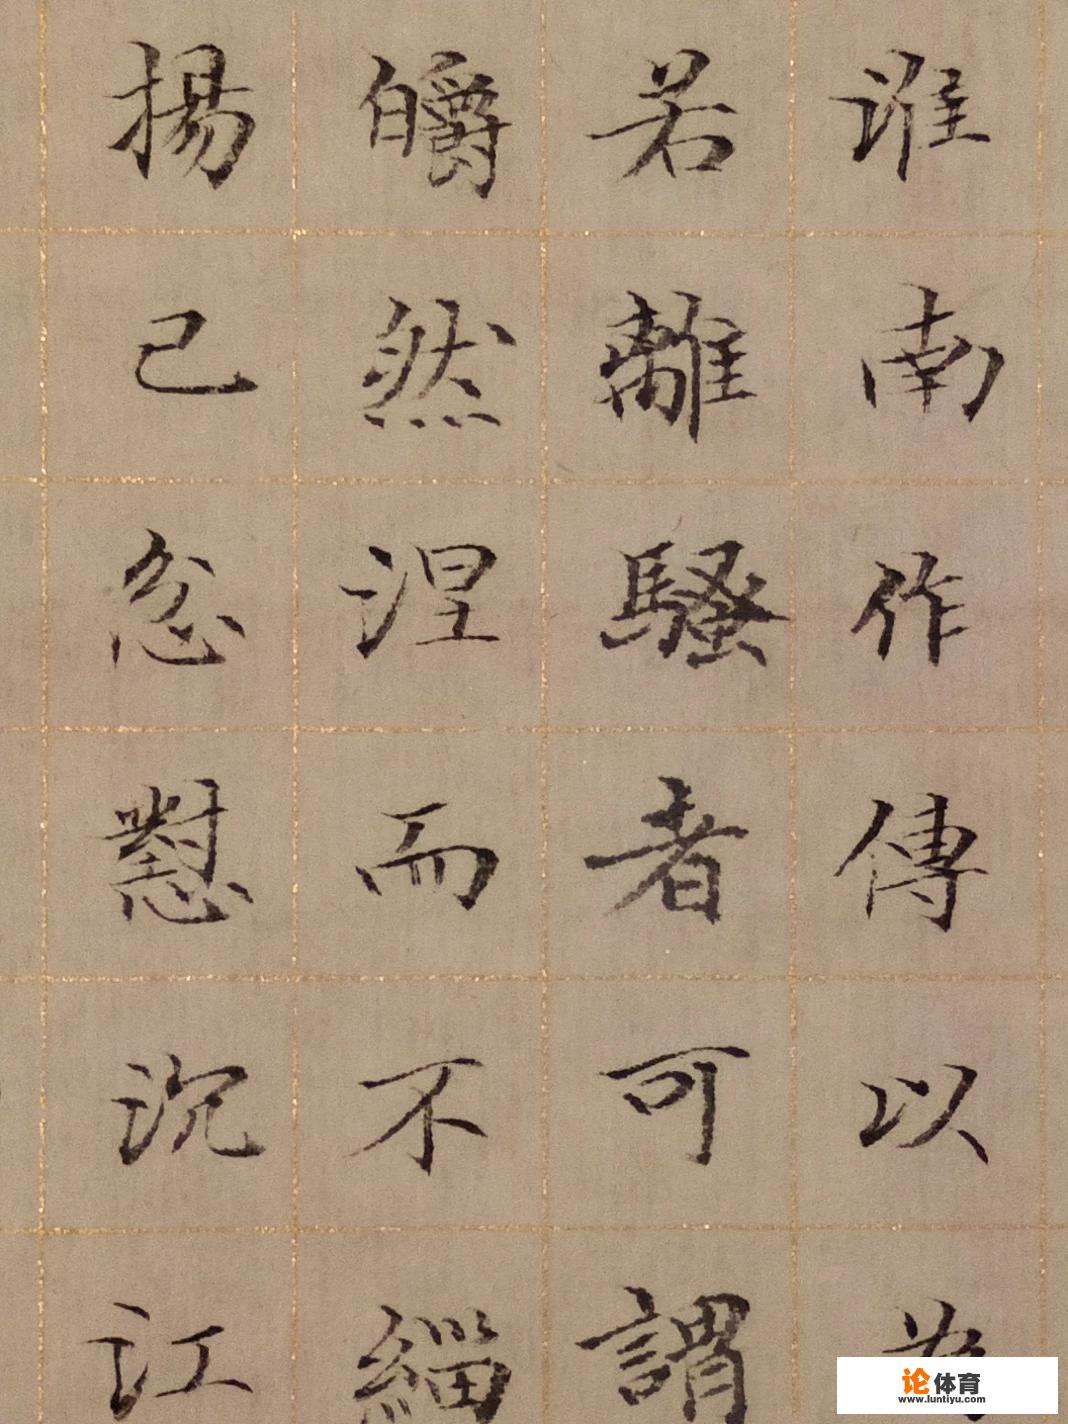 淮南作傳以為
若離騷者可謂
皭然涅而不緇
揚己忿懟沉江
论体育
www.luntiyu.com